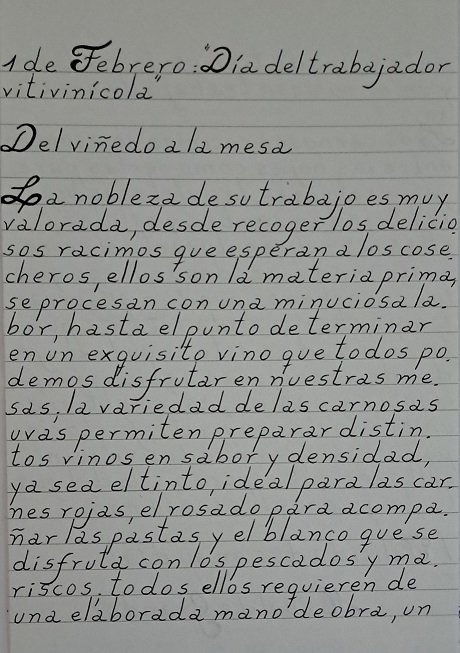 1 de Febrero: "Día del trabajador
vitivinícola"
Del viñedo a la mesa
La nobleza de su trabajo es muy
valorada, desde recoger los delicio
sos racimos que esperan a los cose.
cheros, ellos son la materia prima,
se procesan con una minuciosa la.
bor, hasta el punto de terminar
en un exquisito vino que todos po.
demos disfrutar en nuestras me.
sas, la variedad de las carnosas
uvas permiten preparar distin.
tos vinos en sabor y densidad,
ya sea el tinto, ideal para las car.
nes rojas, el rosado para acompa.
ñar las pastas y el blanco que se
disfruta con los pescados y ma.
riscos, todos ellos requieren de
una elaborada mano de obra, un